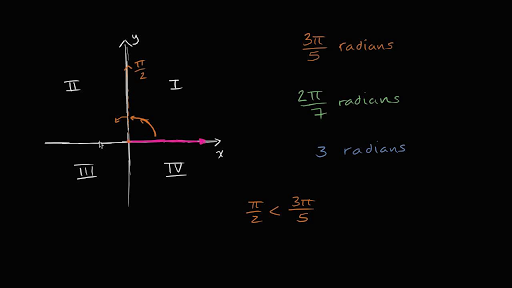 y
π/2
II
I
x
III
IV
3π/5 radians
2π/7 radians
3 radians
π/2 < 3π/5